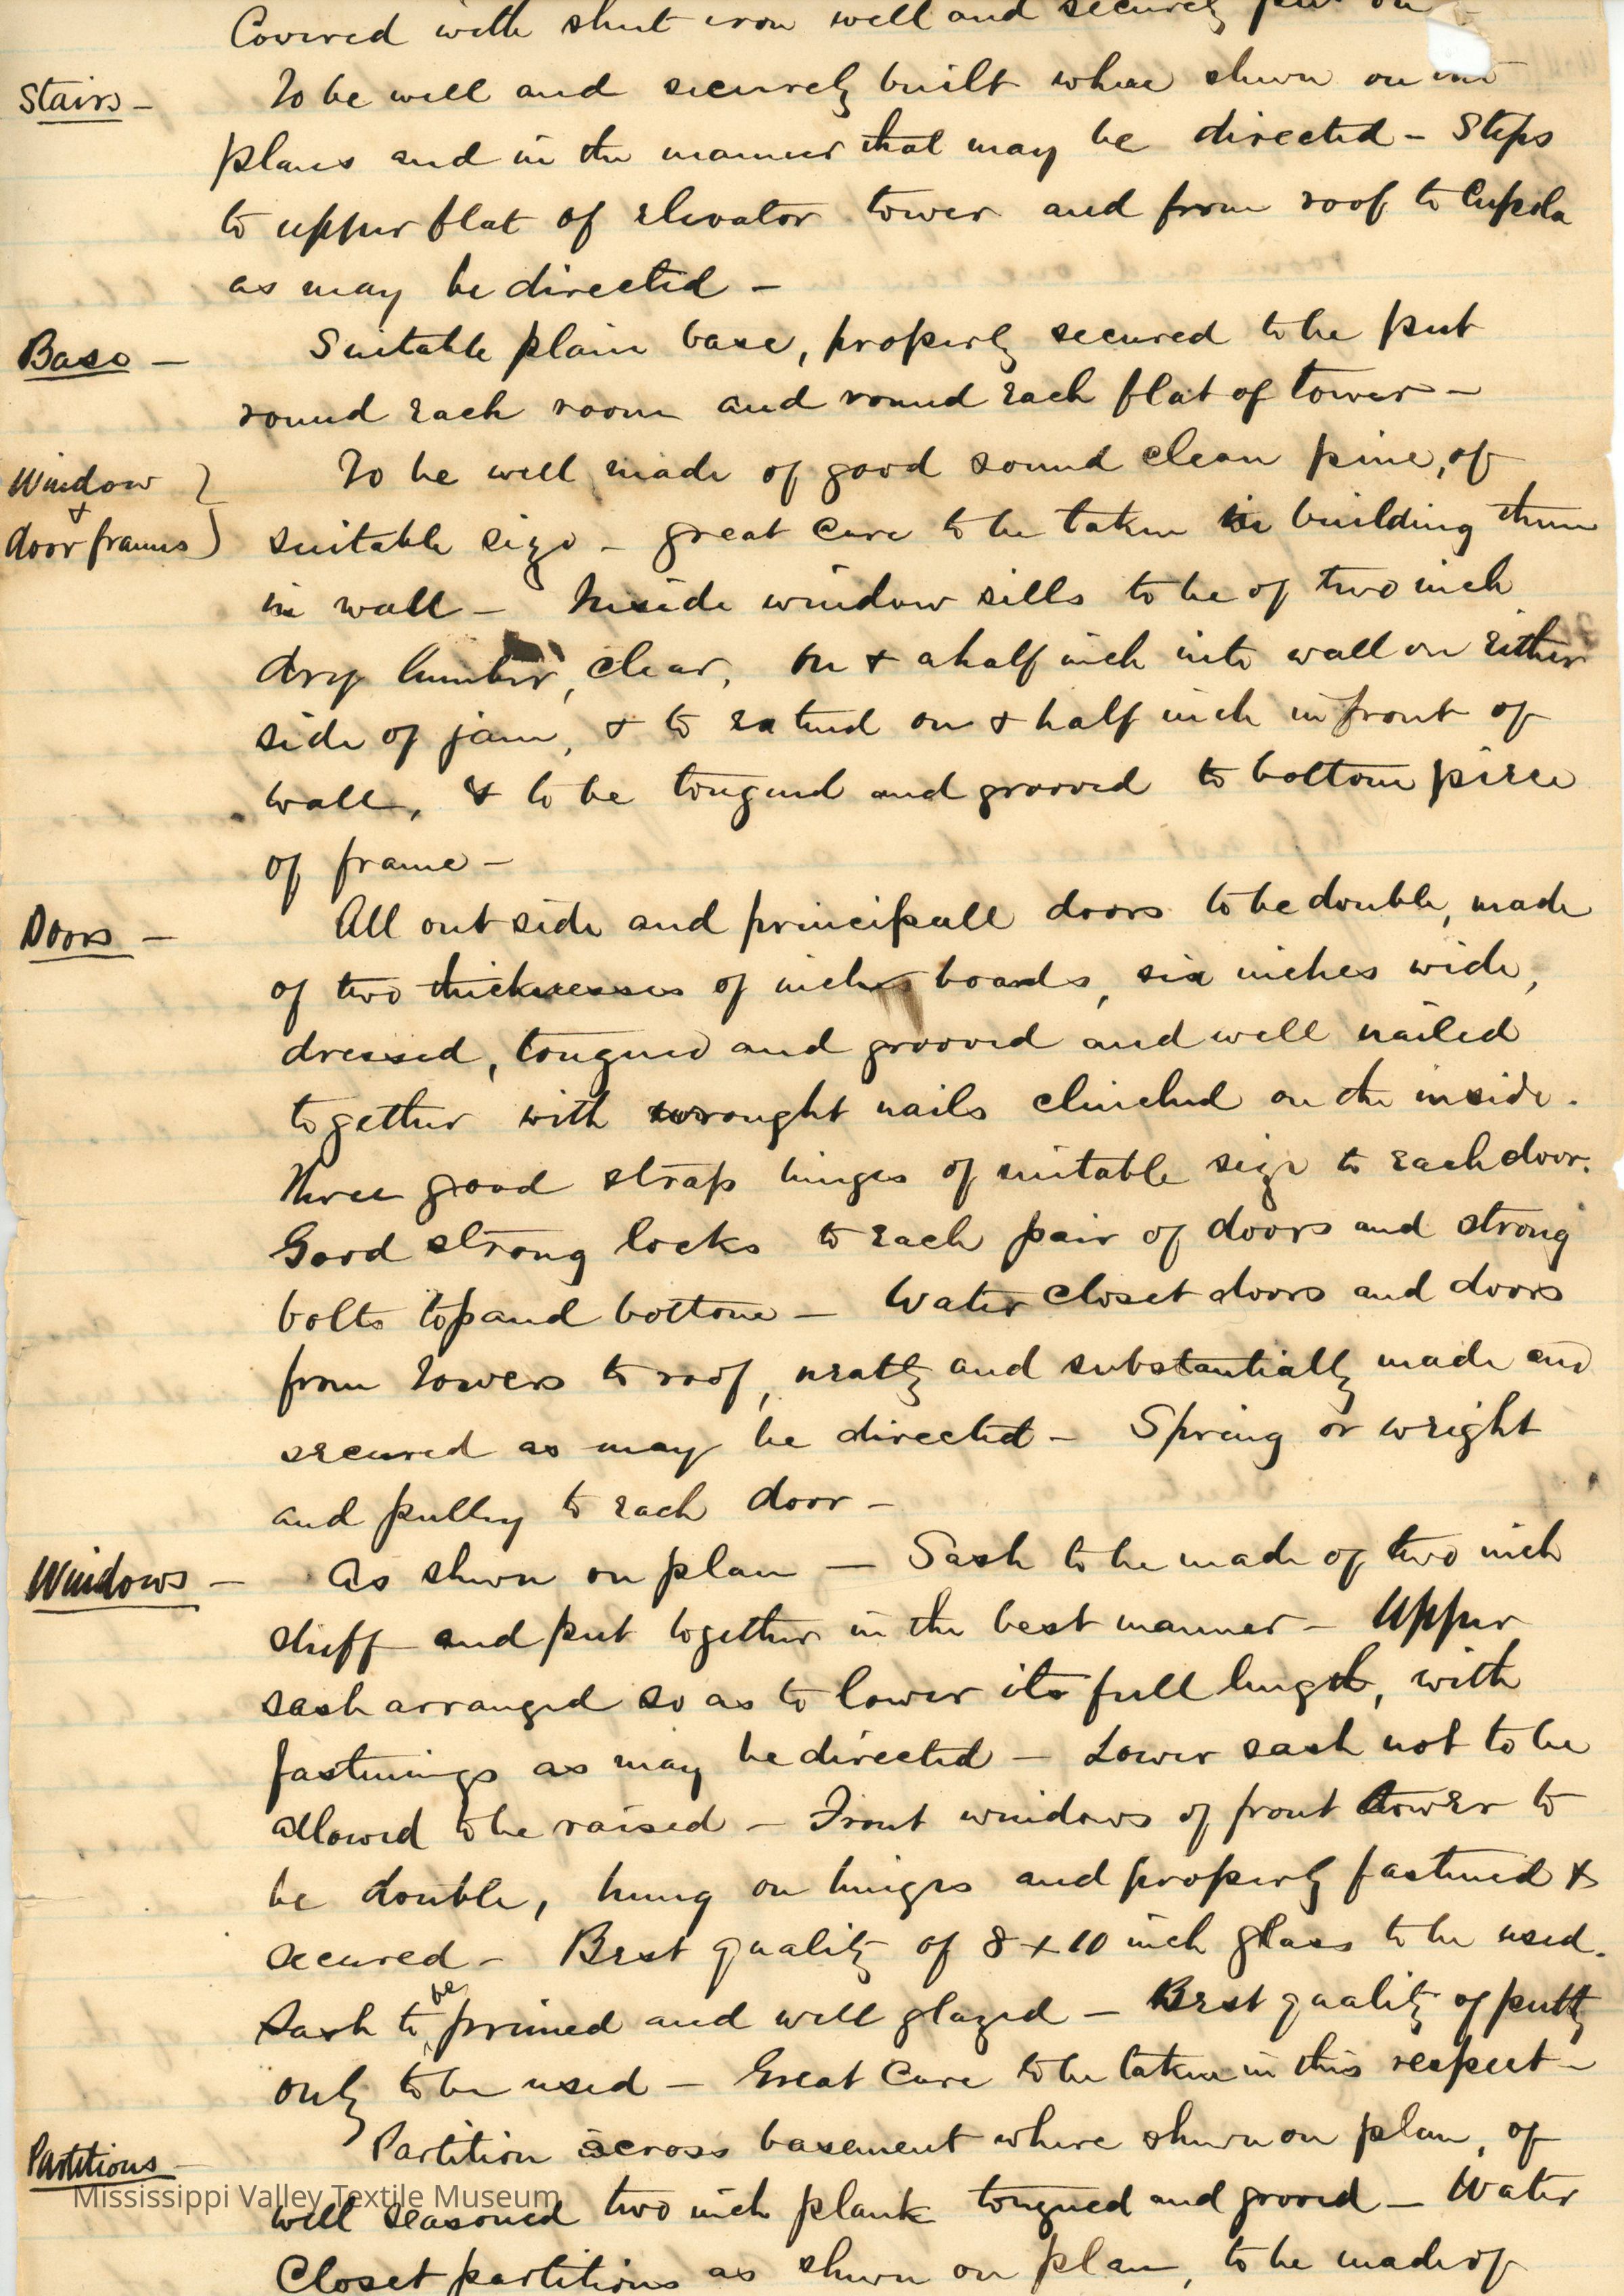 Covered with sheet iron well and securely put on
Stairs - To be well and securely built where shewn on the
plans and in the manner that may be directed - Steps
to upper flat of elevator tower and from roof to Cupola
as may be directed -
Base - Suitable plain base, properly secured to be put
round each room and round each flat of tower -
Window } To be well made of good sound clean pine, of
&
door frames } suitable size - great care to be taken in building them
in wall - Inside window sills to be of two inch
dry lumber, clear, one & a half inch into wall on either
side of jam, & to extend one & half inch in front of
wall, & to be tongued and grooved to bottom piece
of frame -
Doors - All outside and principall doors to be double, made
of two thicknesses of inch boards, six inches wide,
dressed, tongued and grooved and well nailed
together with wrought nails clinched on the inside.
Three good strap hinges of suitable size to each door.
Good strong locks to each pair of doors and strong
bolts top and bottom - Water closet doors and doors
from towers to roof, neatly and substantially made and
secured as may be directed - Spring or weight
and pulley to each door -
Windows - As shewn on plan - Sash to be made of two inch
stuff and put together in the best manner - Upper
sash arranged so as to lower its full length, with
fastenings as may be directed - Lower sash not to be
allowed to be raised - Front windows of front tower to
be double, hung on hinges and properly fastened &
secured - Best quality of 8 x 10 inch glass to be used.
Sash to be primed and well glazed - Best quality of putty
only to be used - Great care to be taken in this respect -
Partitions - Partition across basement where shewn on plan, of
well seasoned two inch plank tongued and grooved - Water
Closet partitions as shewn on plan, to be made of
Mississippi Valley Textile Museum